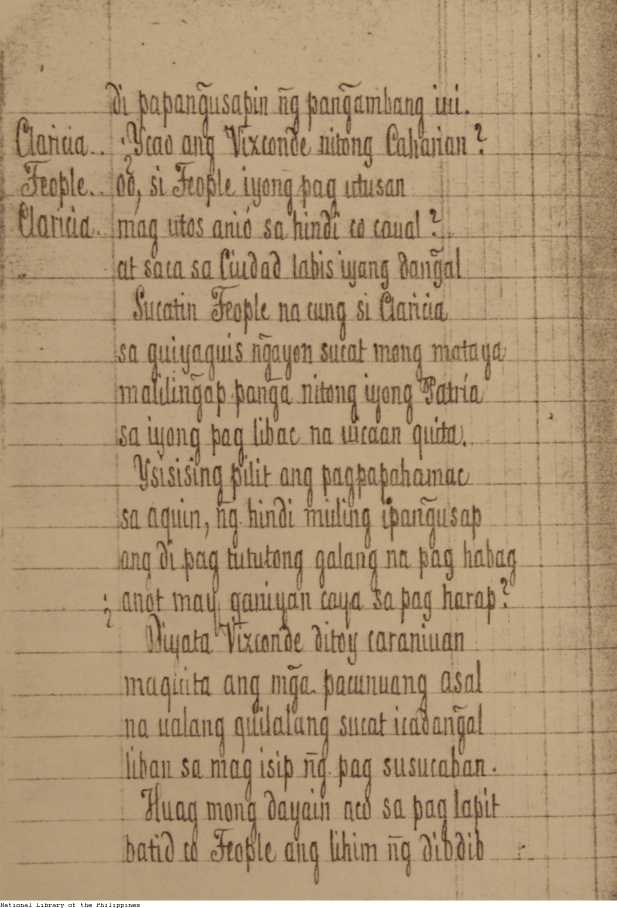 di papang̃usapin ñg pang̃ambang ini.
Claricia.. ¿Ycao ang Vizconde nitong Caharian?
Feople.. oó, si Feople iyong pag utusan
Claricia.. mag utos anió sa hindi co caual?
at saca sa Ciudad labis iyang dang̃al
Sucatin Feople na cung si Claricia
sa guiyaguis ñgayon sucat mong mataya
maliling̃ap pang̃a nitong iyong Patria
sa iyong pag libac na uicaan quita.
Ysisising pilit ang pagpapahamac
sa aquin, ñg hindi muling ipang̃usap
ang di pag tututong galang na pag habag
¿anót may ganiyan caya sa pag harap?
Diyata Vizconde ditoy caraniuan
maquita ang mg̃a pacunuang asal
na ualang quilalang sucat icadang̃al
liban sa mag isip ñg pag susucaban.
Huag mong dayain aco sa pag lapit
batid co Feople ang lihim ñg dibdib
National Library of the Philippines